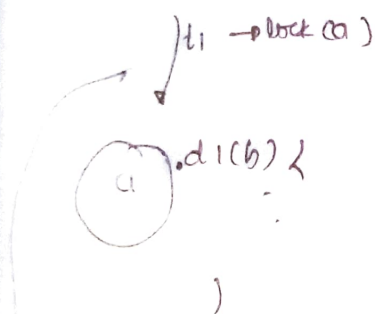 t1 → lock(a)
a .d1(b) {
:
}